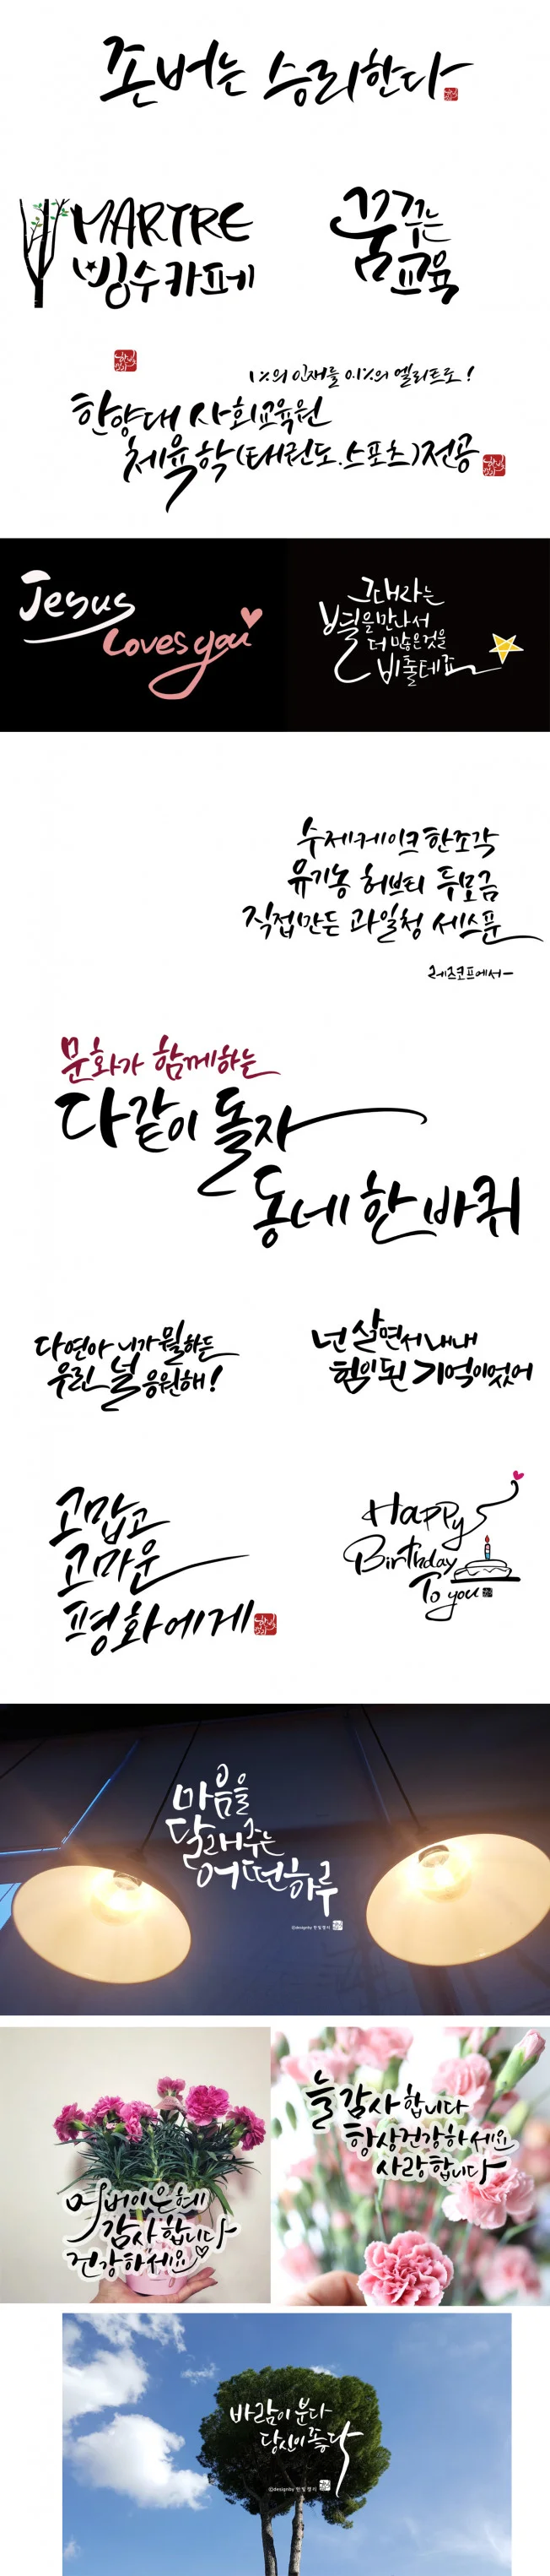 존버는 승리한다
MARTRE
빙수카페
꿈꾸는
교육
1%의 인재를 0.1%의 엘리트로!
한양대 사회교육원
체육학(태권도.스포츠)전공
Jesus
loves you
그대라는
별을만나서
더 많은것을
비출테죠
수제케이크 한조각
유기농 허브티 두모금
직접만든 과일청 세스푼
문화가 함께하는
다같이 돌자
동네 한 바퀴
다연아 니가 뭘하든
우린 널 응원해!
넌 살면서 내내
힘이된 기억이었어
고맙고
고마운
평화에게
Happy
Birthday
To you
마음을
달래주는
어떤하루
©designby 한빛캘리
어버이은혜
감사합니다
건강하세요
늘 감사합니다
항상건강하세요
사랑합니다
바람이 분다
당신이 좋다
©designby 한빛캘리